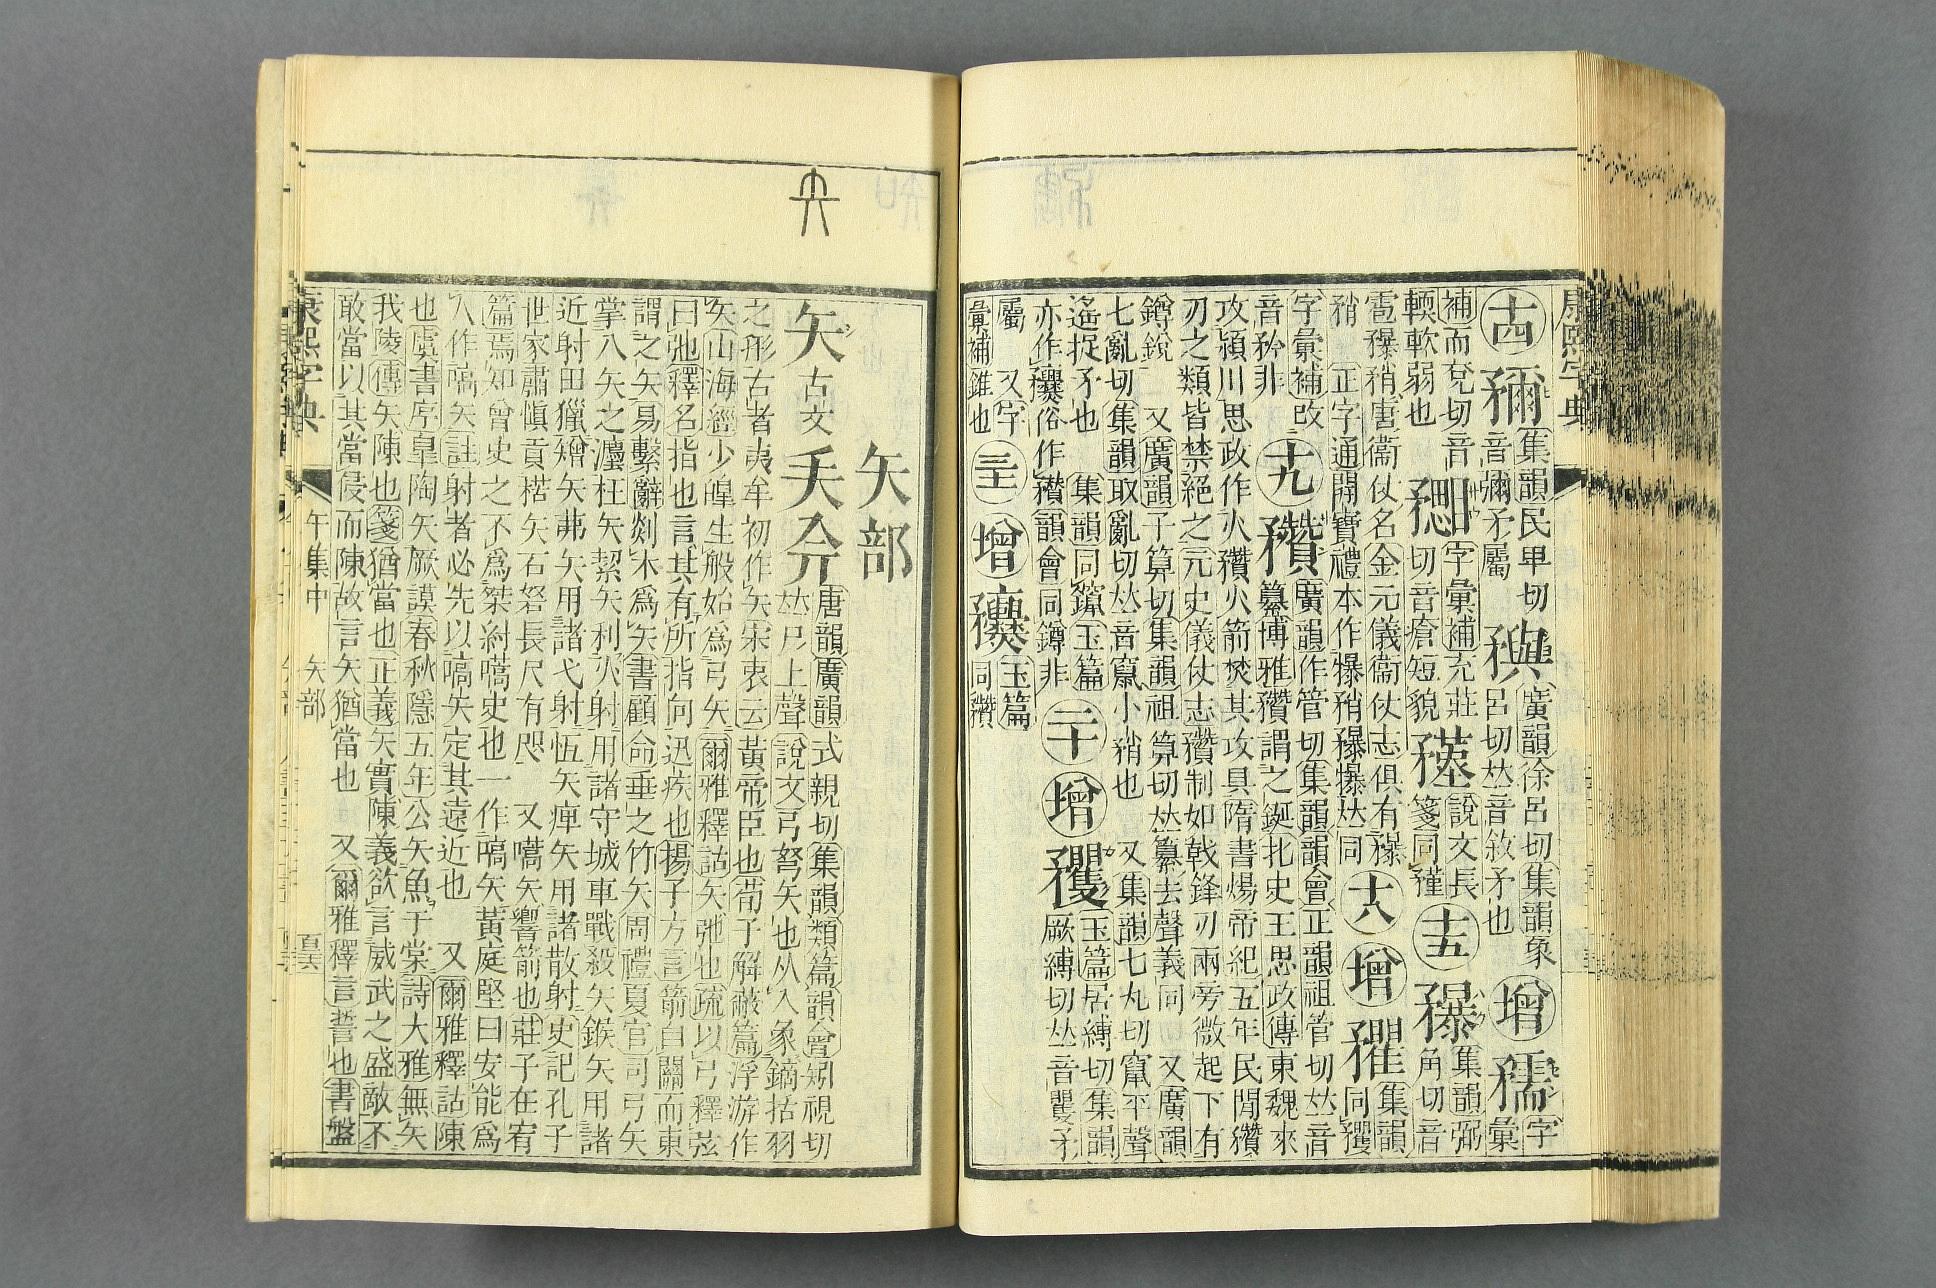 康熙字典
十四 䥸集韻民卑切音彌矛屬 𥎐廣韻徐呂切集韻象呂切𠀤音敘矛也 增 𥎘字彙
補而兗切音輭軟弱也 字彙補充莊切音瘡短貌 說文長箋同𥎊 十五 𥎝集韻弼角切音
雹𥎝矟唐衞仗名金元儀衞仗志俱有𥎝矟 正字通開寶禮本作爆矟𥎝爆𠀤同 十八 增 集韻同矍
字彙補改音矜非 十九 𥎞廣韻作管切集韻韻會正韻祖管切𠀤音纂博雅𥎞謂之鋋北史王思政傳東魏來
攻潁川思政作火𥎞火箭焚其攻具隋書煬帝紀五年民閒𥎞
刃之類皆禁絕之元史儀仗志𥎞制如戟鋒刃兩旁微起下有
鐏銳 又廣韻子算切集韻祖算切𠀤纂去聲義同 又廣韻
七亂切集韻取亂切𠀤音竄小矟也 又集韻七丸切竄平聲
遙捉矛也 集韻同䥣玉篇亦作俗作𥎞韻會同鐏非 二十 增 矡玉篇居縛切集韻厥縛切𠀤音矍矛
屬 又字彙補錐也 三十 增 玉篇同𥎞
矢部
矢古文𠂕𠓥唐韻廣韻式視切集韻類篇韻會矧視切
𠀤尸上聲說文弓弩矢也从入象鏑括羽
之形古者夷牟初作矢宋衷云黃帝臣也荀子解蔽篇浮游作
矢山海經少皥生般始爲弓矢爾雅釋詁矢弛也疏以弓釋弦
曰弛釋名指也言其有所指向迅疾也揚子方言箭自關而東
謂之矢易繫辭剡木爲矢書顧命垂之竹矢周禮夏官司弓矢
掌八矢之灋枉矢絜矢利火射用諸守城車戰殺矢鍭矢用諸
近射田獵矰矢茀矢用諸弋射恆矢痺矢用諸散射史記孔子
世家肅愼貢楛矢石砮長尺有咫 又嚆矢響箭也莊子在宥
篇焉知曾史之不爲桀紂嚆矢也一作嗃矢黃庭堅曰安能爲
人作嗃矢註射者必先以嗃矢定其遠近也 又爾雅釋詁陳
也虞書序皐陶矢厥謨春秋隱五年公矢魚于棠詩大雅無矢
我陵傳矢陳也箋猶當也正義矢實陳義欲言威武之盛敵不
敢當以其當侵而陳故言矢猶當也 又爾雅釋言誓也書盤
康熙字典 午集中 矢部